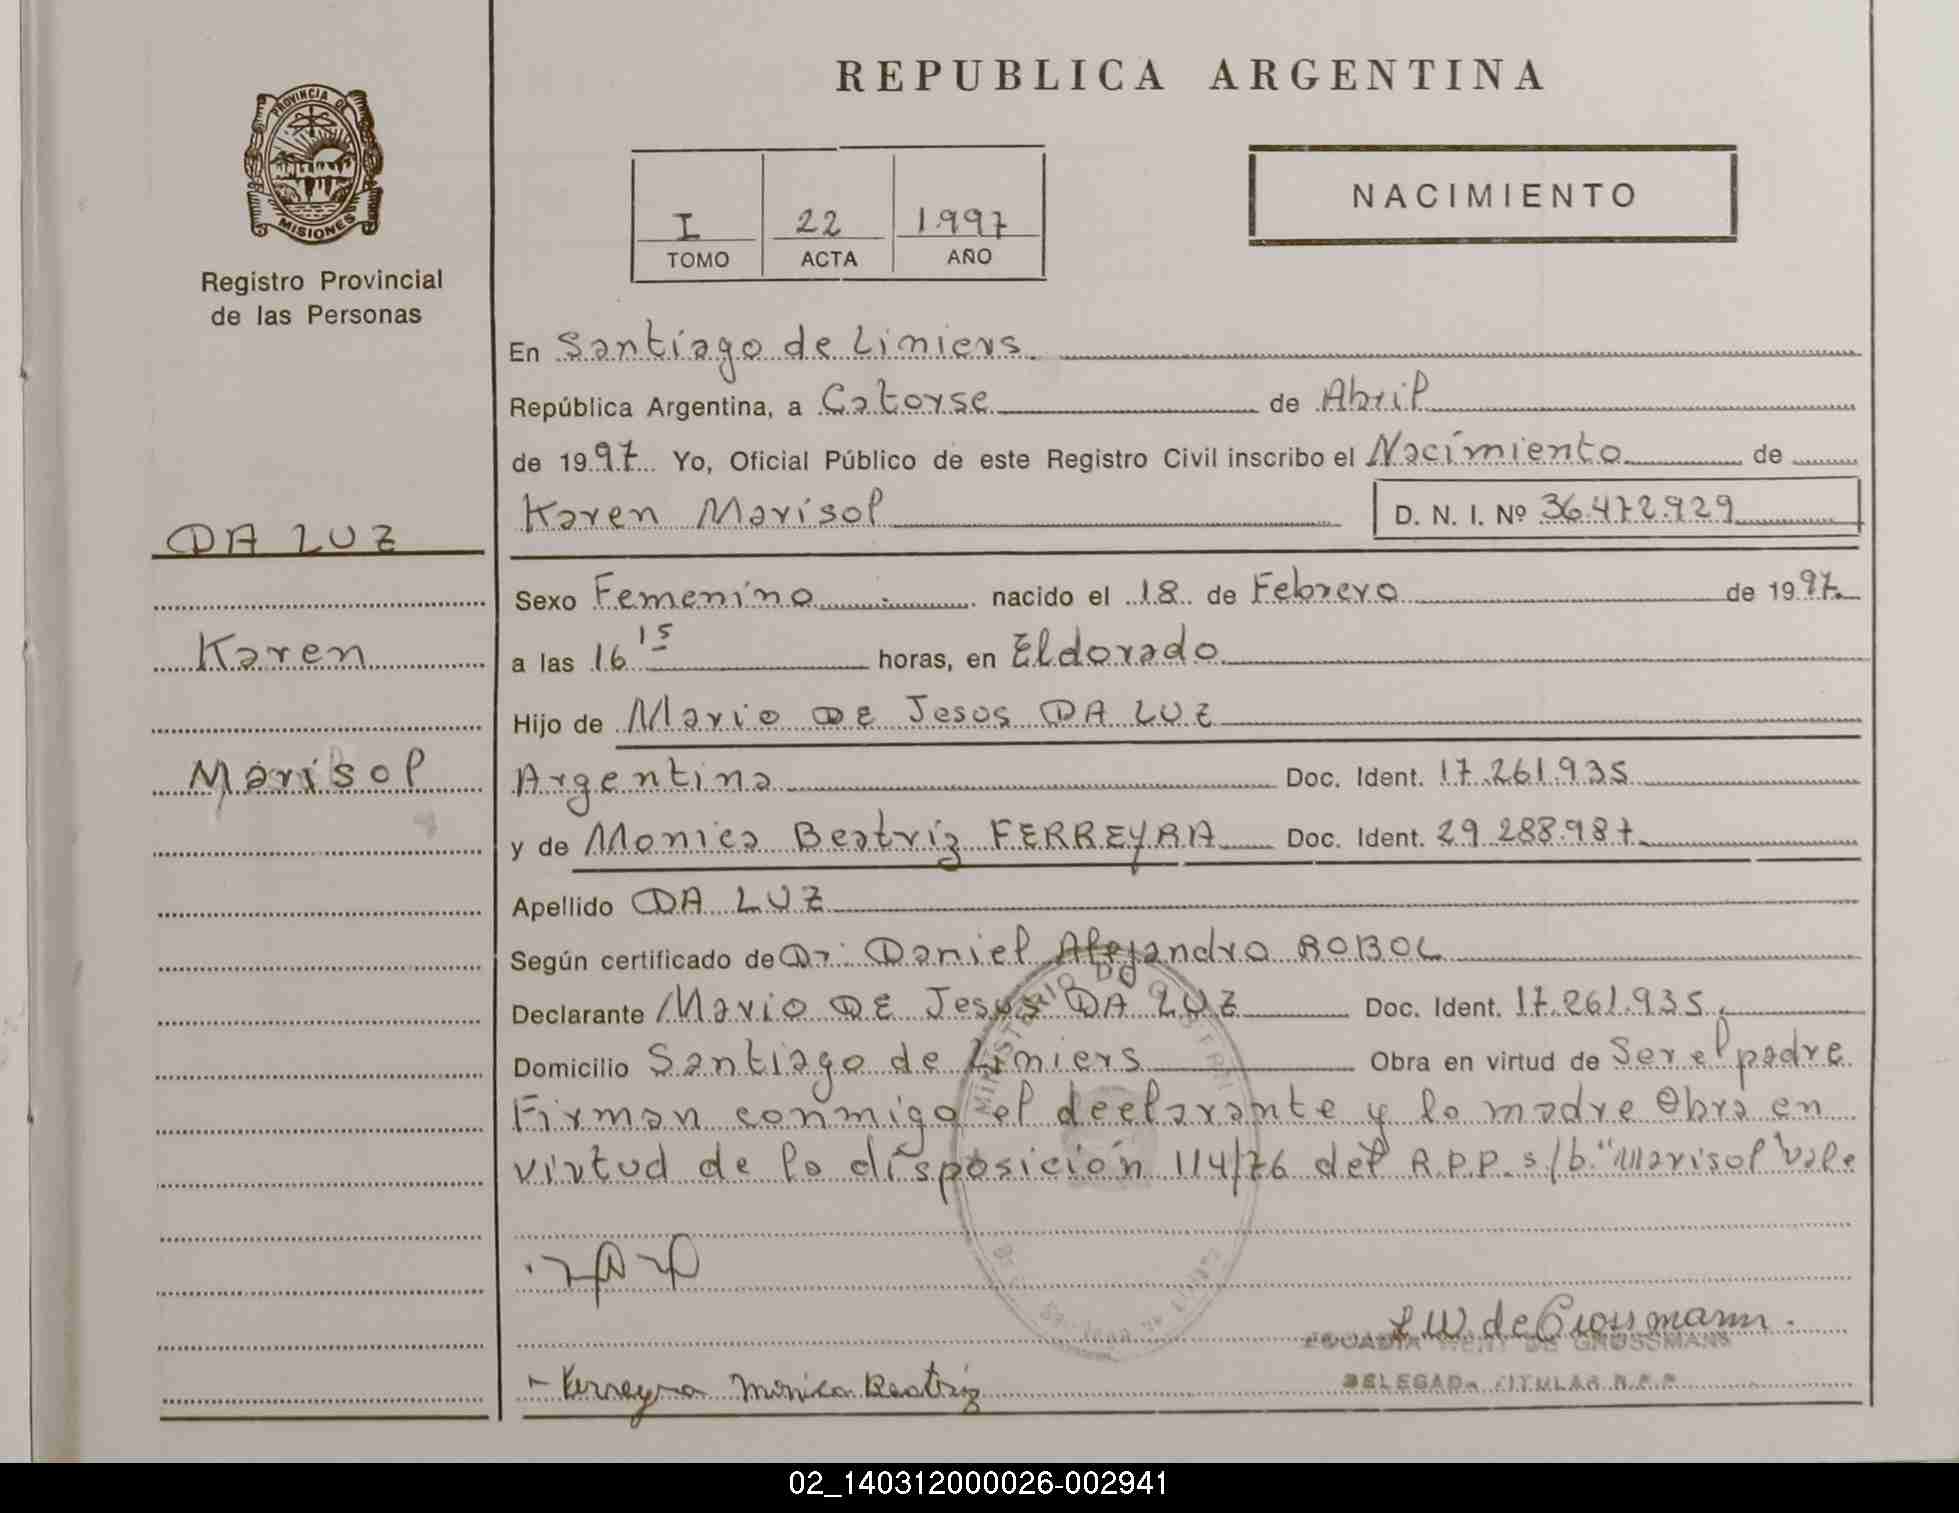 REPUBLICA ARGENTINA
PROVINCIA DE
MISIONES
Registro Provincial
de las Personas
I 22 1.997
TOMO ACTA AÑO
NACIMIENTO
En Santiago de Liniers.
República Argentina, a Catorse de Abril
de 1997 Yo, Oficial Público de este Registro Civil inscribo el Nacimiento de
Karen Marisol D. N. I. Nº 36.472.929
DA LUZ
Karen
Marisol
Sexo Femenino nacido el 18 de Febrero de 1997.
a las 16 15 horas, en Eldorado
Hijo de Mario DE Jesus DA LUZ
Argentina Doc. Ident. 17.261.935
y de Monica Beatríz FERREYRA Doc. Ident. 29.288.987.
Apellido DA LUZ
Según certificado de Dr: Daniel Alejandro ROBOL
Declarante Mario DE Jesus DA LUZ Doc. Ident. 17.261.935.
Domicilio Santiago de Liniers Obra en virtud de Ser el padre
Firman conmigo el declarante y la madre Obra en
virtud de la disposición 114/76 del R.P.P. s/b. "Marisol" Vale
MINISTERIO DE
L.W. de Grossmann.
DE GROSSMANN
Ferreyra Monica Beatriz
DELEGADA TITULAR R.P.P.
02_140312000026-002941